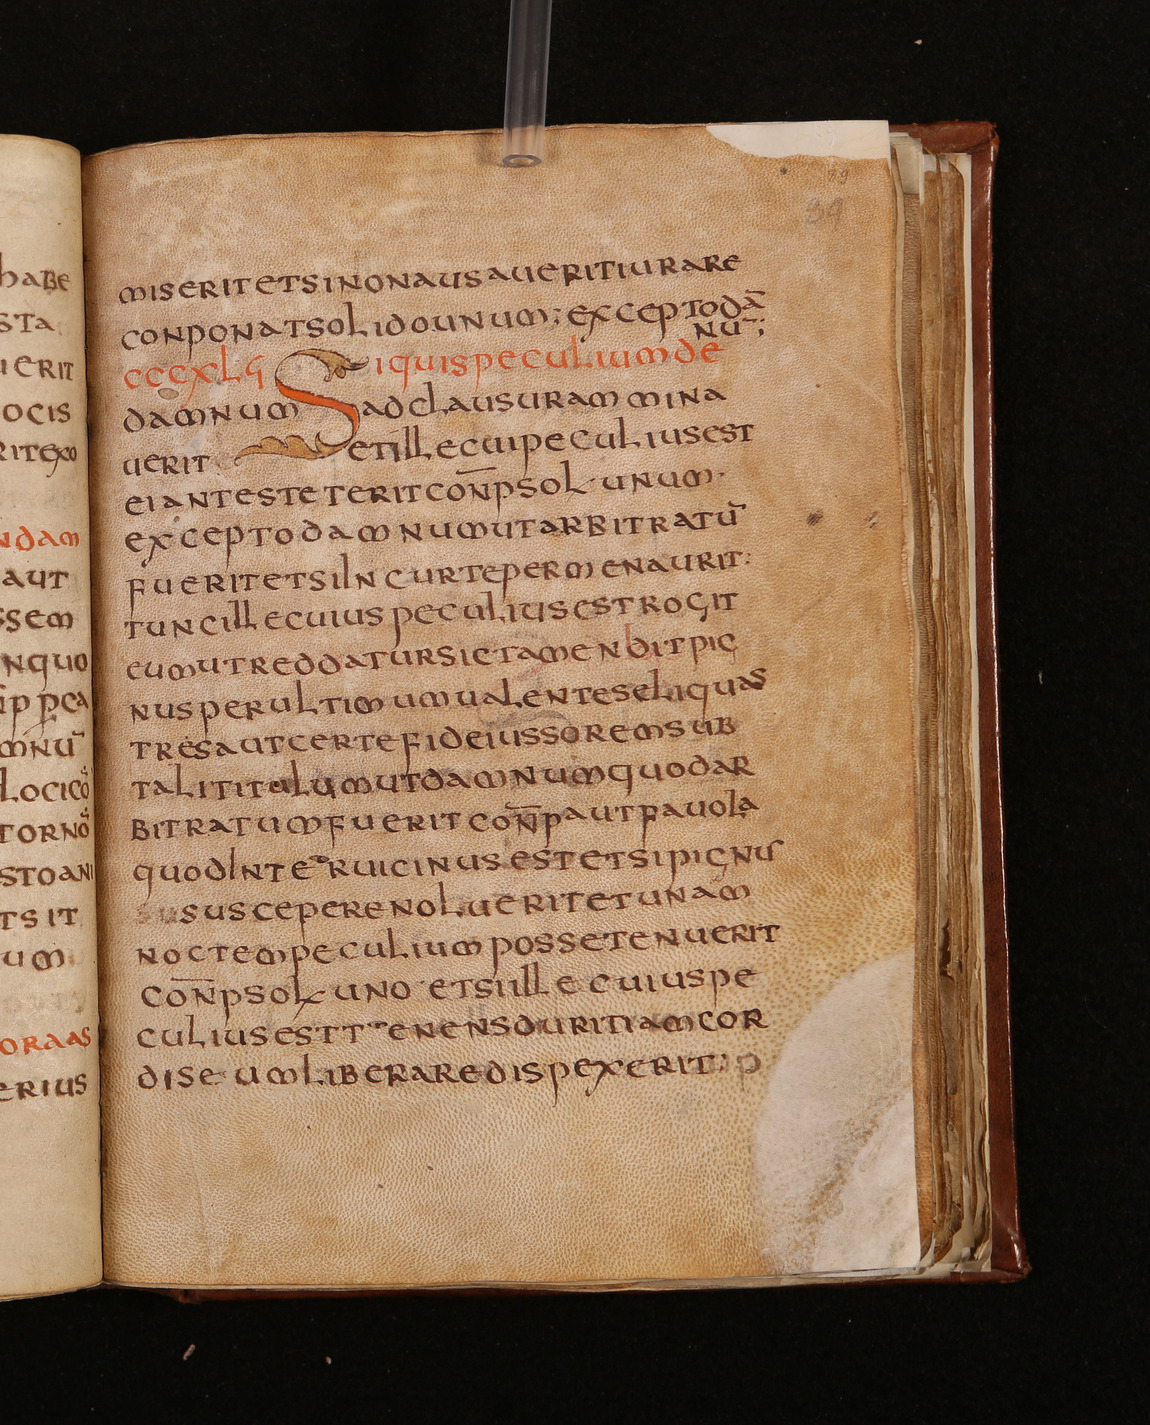 habe
sta
uerit
ocis
ritexo
ndam
aut
ssem
nquo
mnū
locico
torno
stoani
tsit
um
oraas
erius
39
39
miseritetsinonausaueritiurare
conponatsolidounum; exceptodā
nū;
cccxlϛ Siquispeculiumde
damnum adclausurammina
uerit etillecuipeculiusest
eianteste teritcon̄psol·unum·
exceptodamnumutarbitratū
fueritetsiIncurtepermenaurit:
tuncillecuiuspeculiusestrogit
eumutreddatursictamenditpig
nusperultimumualenteseliquas
tresautcertefideiussoremsub
talititulumutdamnumquodar
bitratumfueritcon̄pautfauola
quodInteruicinusestetsipignus
susceperenolueritetunam
noctempeculiumpossetenuerit
con̄psol uno·etsiillecuiuspe
culiusesttenensduritiamcor
disE·umliberaredispexerit: